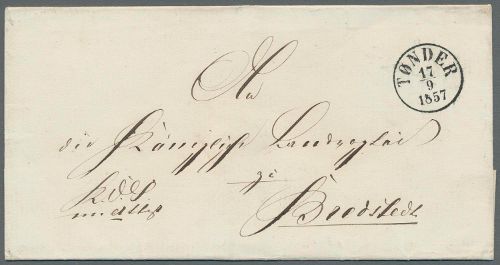 An
TØNDER
17
9
1857
die Königliche Landvogtei
zu
K.D.S.
Bredstedt